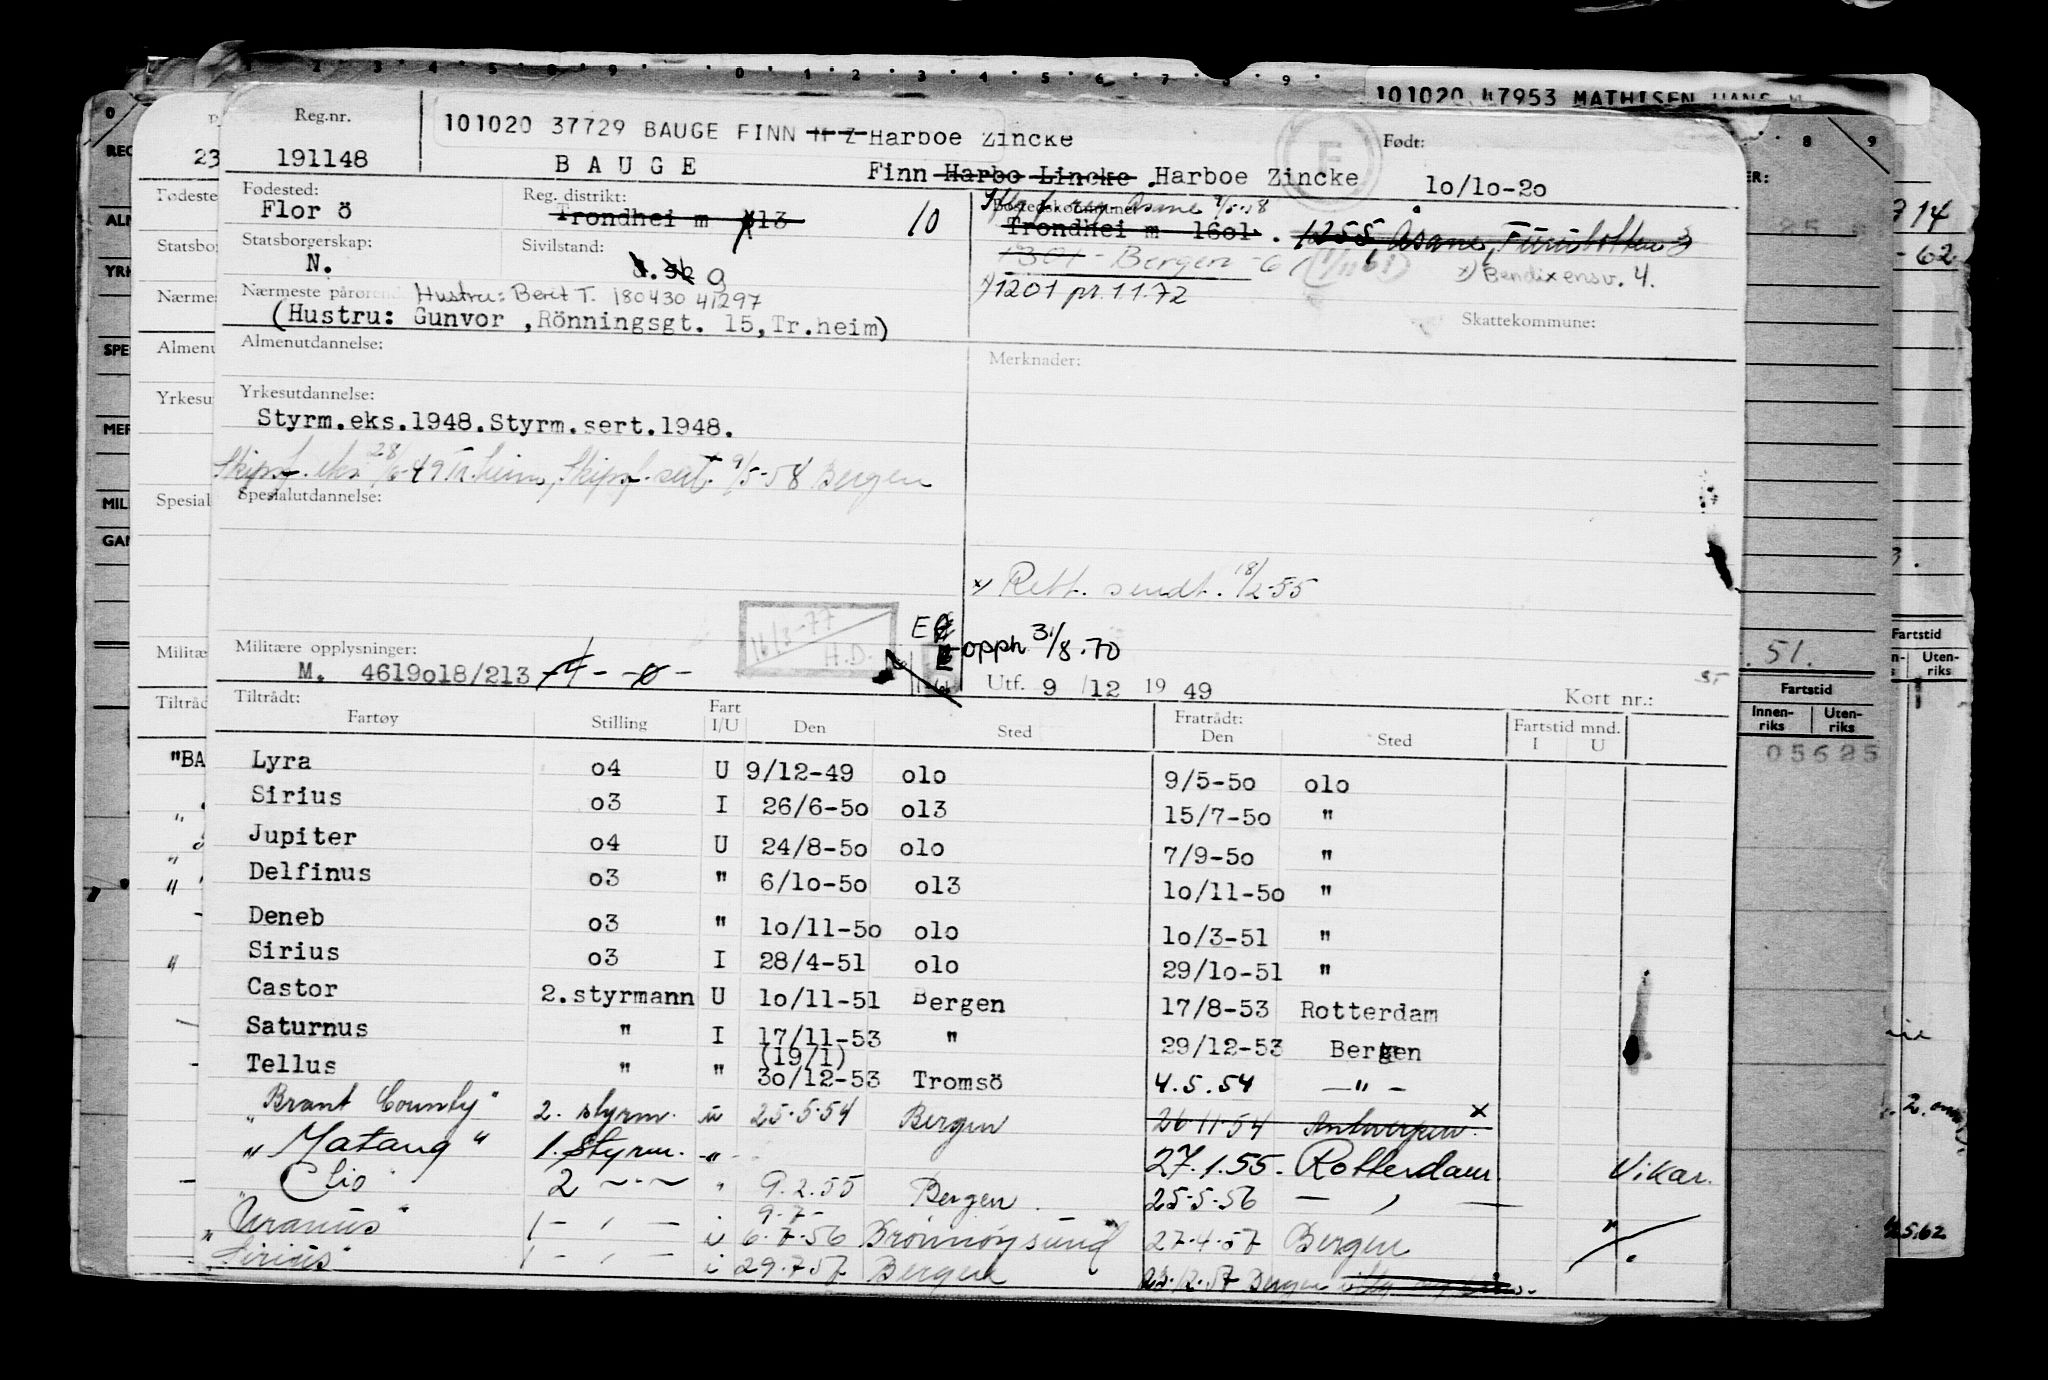 101020 47953 MATHISEN HANS
Reg.nr.
191148
101020 37729 BAUGE FINN H Z Harboe Zincke
BAUGE Finn Harbo Lincke. Harboe Zincke
Født:
10/10-20
Fødested:
Flor ö
Reg. distrikt:
Trondhei m 013
10
Bostedskommune
Trondhei m 16ol. 1255, Åsane,
1301 - Bergen -61
x) Bendixensv. 4.
x) 1201 pr. 1.1.72
Statsborgerskap:
N.
Sivilstand:
g
Nærmeste pårørende
Hustru: Berit T. 180430 41297
(Hustru: Gunvor ,Rönningsgt. 15,Tr.heim)
Skattekommune:
Almenutdannelse:
Merknader:
Yrkesutdannelse:
Styrm.eks.1948.Styrm.sert.1948.
Skipsf. eks. 28/6-49 Tr.heim, Skipsf. sert. 9/5-58 Bergen
Spesialutdannelse:
x) Rett. sendt. 18/2-55
16/3-77
H.D.
opph 31/8.70
Militære opplysninger:
M. 4619ol8/213
Utf. 9 /12 19 49
Kort nr.:
Tiltrådt:
Fartøy Stilling Fart I/U Den Sted Fratrådt: Den Sted Fartstid mnd. I U
Lyra o4 U 9/12-49 olo 9/5-5o olo
Sirius o3 I 26/6-5o ol3 15/7-5o "
Jupiter o4 U 24/8-5o olo 7/9-5o "
Delfinus o3 " 6/1o-5o ol3 1o/11-5o "
Deneb o3 " 1o/11-5o olo 1o/3-51 "
Sirius o3 I 28/4-51 olo 29/1o-51 "
Castor 2.styrmann U 1o/11-51 Bergen 17/8-53 Rotterdam
Saturnus " I 17/11-53 " 29/12-53 Bergen
(19/1)
Tellus " " 3o/12-53 Tromsö 4.5.54 —"—
"Brant County" 2. styrm. u 25.5.54 Bergen 26.11.54 Antwerpen. x
"Matang" 1. Styrm. -"- 27.1.55. Rotterdam. Vikar.
Clio 2 —"— " 9.2.55 Bergen 25.5.56 — " —
9.7-
"Uranus" 1 — " — u 6.7.56 Brønnøysund 27.4.57 Bergen "
"Sirius" 1 — " — i 29.7.57 Bergen 12.57 Bergen
Fartstid
Innen-riks Uten-riks
05625
51.
Fartstid
Uten-riks